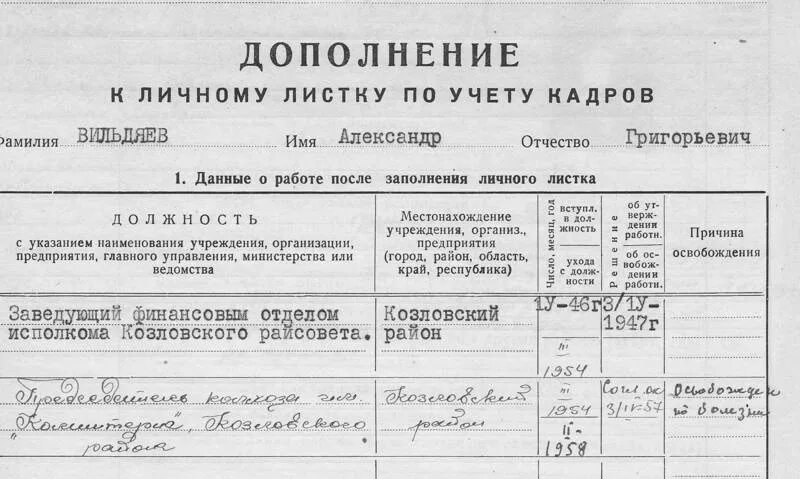 ДОПОЛНЕНИЕ
К ЛИЧНОМУ ЛИСТКУ ПО УЧЕТУ КАДРОВ
Фамилия ВИЛЬДЯЕВ Имя Александр Отчество Григорьевич
1. Данные о работе после заполнения личного листка
ДОЛЖНОСТЬ
с указанием наименования учреждения, организации,
предприятия, главного управления, министерства или
ведомства
Местонахождение
учреждения, организ.,
предприятия
(город, район, область,
край, республика)
Число, месяц, год
вступл.
в дол-
жность
ухода
с долж-
ности
Решение
об ут-
верж-
дении
работн.
об ос-
вобож-
дении
работн.
Причина
освобождения
Заведующий финансовым отделом
исполкома Козловского райсовета.
Козловский
район
1У-46г
III
1954
3/1У-
1947г
Председатель колхоза им.
"Коминтерна", Козловского
района
Козловский
район
III
1954
II-
1958
3/IV-57
Освобожден
по болезни